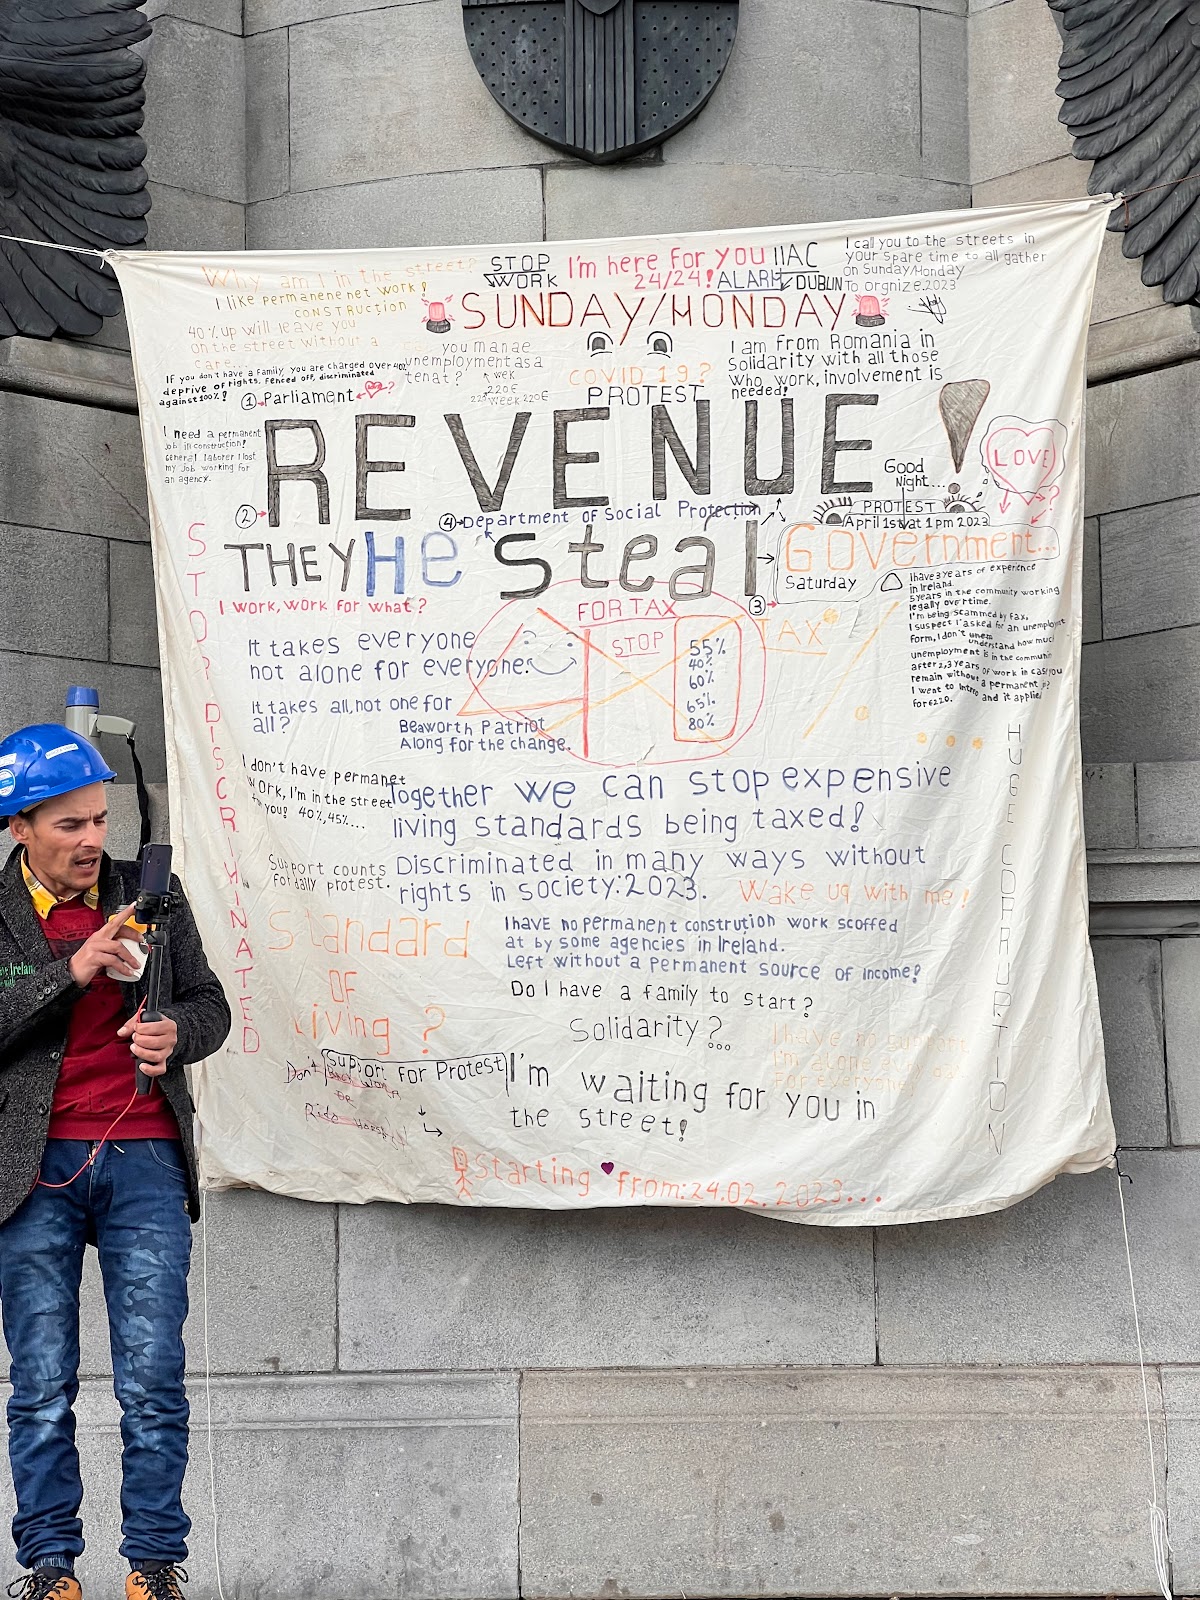 Why am I in the street?
I like permanene net work!
CONSTRUCTION
STOP
WORK
I'm here for you
24/24!
11AC
ALARM
DUBLIN
I call you to the streets in
your spare time to all gather
on Sunday/Monday
To orgnize.2023
SUNDAY/MONDAY
40% up will leave you
on the street without a
care...
you manae
unemployment as a
tenat?
WEK
220€
WEEK 220€
COVID 19?
PROTEST
I am from Romania in
Solidarity with all those
Who work, involvement is
needed!
If you don't have a family, you are charged over 40%
deprive of rights. Fenced off, discriminated
against 100%!
1 Parliament
?
I need a permanent
job in construction!
General laborer I lost
my job working for
an agency.
2
REVENUE!
LOVE
?
Good
Night...
PROTEST
April 1st at 1 pm 2023
4 Department of Social Protection
THEY He Steal
Government...
Saturday
3
I work, work for what?
FOR TAX
STOP
TAX
40
55%
40%
60%
65%
80%
It takes everyone
not alone for everyone.
It takes all, not one for
all?
Beaworth Patriot
Along for the change.
I have 3 years of experience
in Ireland.
5 years in the community working
legally overtime.
I'm being scammed by fax,
I suspect I asked for an unemployment
form, I don't
understand how much
unemployment is in the
after 2,3 years of work in case you
remain without a permanent
I went to intreo and it applied
for €220.
STOP DISCRIMINATED
HUGE CORRUPTION
I don't have permanet
work, I'm in the street
for you? 40%, 45%...
Together we can stop expensive
living standards being taxed!
Support counts
For daily protest.
Discriminated in many ways without
rights in society: 2023.
Wake uq with me!
Standard
OF
Living?
I have no permanent constrution work scoffed
at by some agencies in Ireland.
Left without a permanent source of income!
Do I have a family to start?
Solidarity?...
I have no support
I'm alone
for everyone
Don't
OR
Support for Protest
I'm waiting for you in
the street!
Starting from: 24.02.2023...